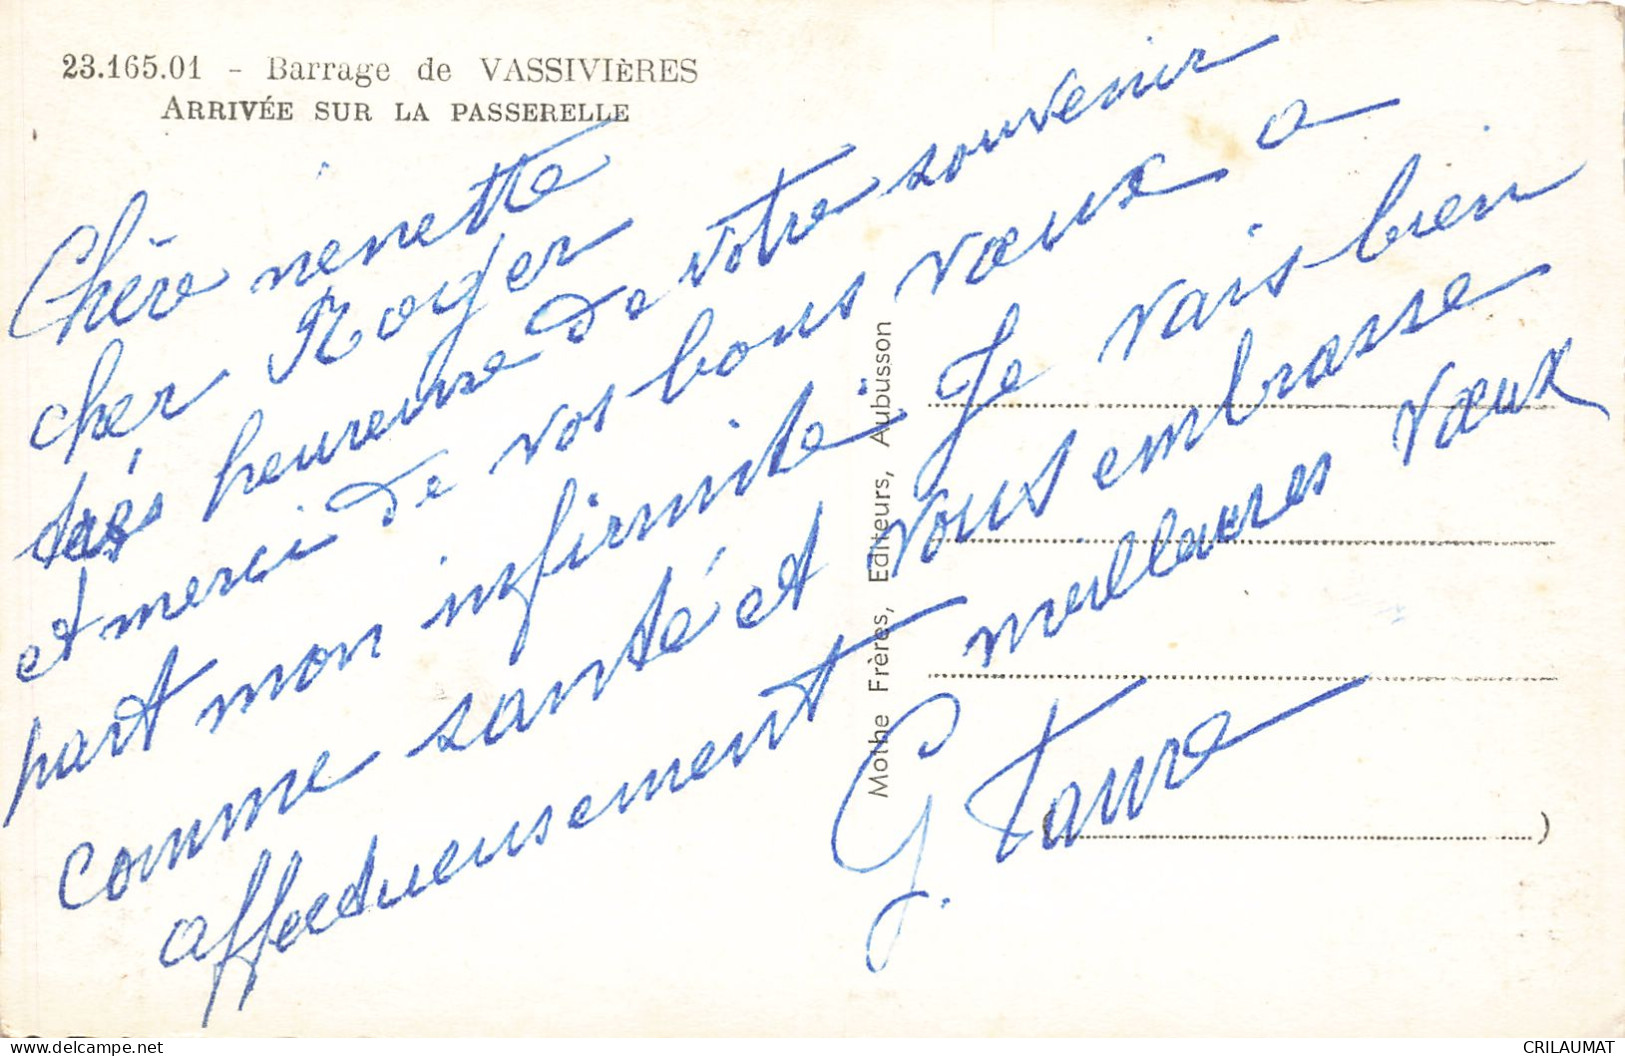 23.165.01 - Barrage de VASSIVIÈRES
ARRIVÉE SUR LA PASSERELLE
Chère nenette
cher Roger
très heureuse de votre souvenir
et merci de vos bons vœux a
part mon infirmité, je vais bien
comme santé et vous embrasse
affectueusement meilleures vœux
G. Faure
Mothe Frères, Editeurs, Aubusson
CRILAUMAT